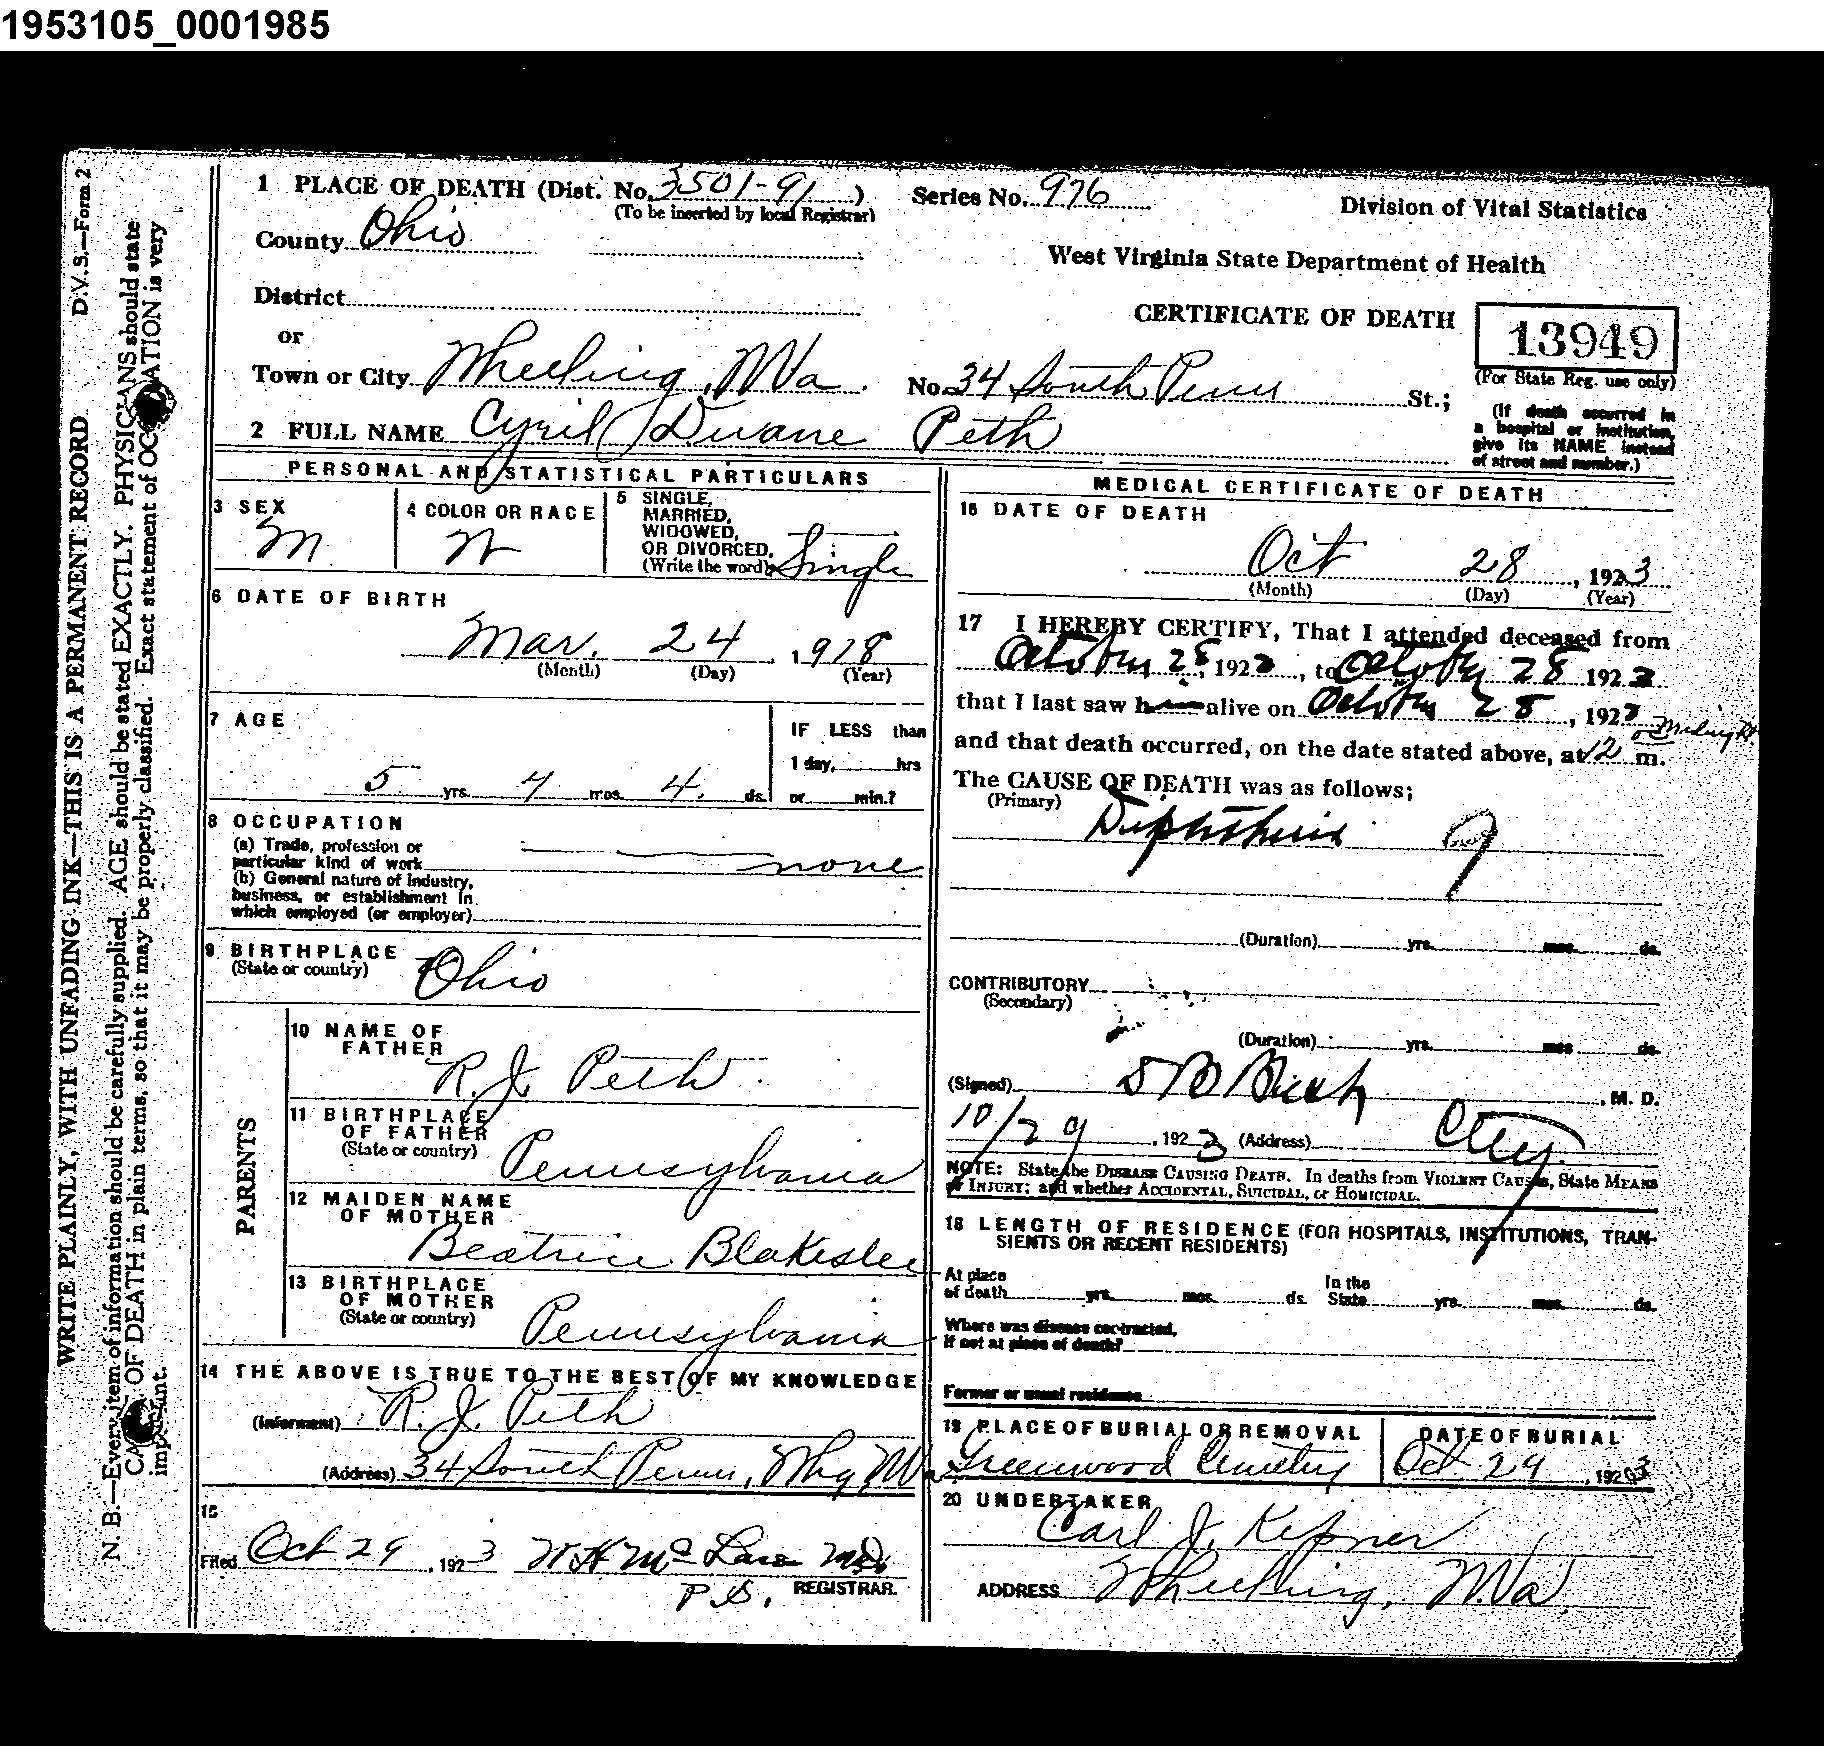 1953105_0001985
D.V.S.—Form 2
WRITE PLAINLY, WITH UNFADING INK—THIS IS A PERMANENT RECORD
N. B.—Every item of information should be carefully supplied. AGE should be stated EXACTLY. PHYSICIANS should state
OF DEATH in plain terms, so that it may be properly classified. Exact statement of OCCUPATION is very
important.
1 PLACE OF DEATH (Dist. No. 3501-91 ) Series No. 976
(To be inserted by local Registrar)
Division of Vital Statistics
County Ohio
West Virginia State Department of Health
District
CERTIFICATE OF DEATH
13949
(For State Reg. use only)
or
Town or City Wheeling, W Va. No. 34 South Penn St.;
(If death occurred in
a hospital or institution,
give its NAME instead
of street and number.)
2 FULL NAME Cyril Duane Peth
PERSONAL AND STATISTICAL PARTICULARS
3 SEX
M
4 COLOR OR RACE
W
5 SINGLE,
MARRIED,
WIDOWED,
OR DIVORCED.
(Write the word) Single
6 DATE OF BIRTH
Mar. 24, 1918
(Month) (Day) (Year)
7 AGE
5 yrs. 7 mos. 4. ds.
IF LESS than
1 day, hrs
or min.?
8 OCCUPATION
(a) Trade, profession or
particular kind of work none
(b) General nature of industry,
business, or establishment in
which employed (or employer)
9 BIRTHPLACE
(State or country) Ohio
PARENTS
10 NAME OF
FATHER
R. J. Peth
11 BIRTHPLACE
OF FATHER
(State or country) Pennsylvania
12 MAIDEN NAME
OF MOTHER
Beatrice Blakeslee
13 BIRTHPLACE
OF MOTHER
(State or country) Pennsylvania
14 THE ABOVE IS TRUE TO THE BEST OF MY KNOWLEDGE
(Informant) R. J. Peth
(Address) 34 South Penn, Whg, W Va
15
Filed Oct 29, 1923 W H Mc Lain MD
P.S. REGISTRAR.
MEDICAL CERTIFICATE OF DEATH
16 DATE OF DEATH
Oct 28, 1923
(Month) (Day) (Year)
17 I HEREBY CERTIFY, That I attended deceased from
October 28, 1923, to October 28 1923
that I last saw him alive on October 28, 1923
and that death occurred, on the date stated above, at 12 midnight m.
The CAUSE OF DEATH was as follows;
(Primary)
Diphtheria 9
(Duration) yrs. mos. ds.
CONTRIBUTORY
(Secondary)
(Duration) yrs. mos ds.
(Signed) , M. D.
10/29, 1923 (Address) City.
NOTE: State the DISEASE CAUSING DEATH. In deaths from VIOLENT CAUSES, State MEANS
OF INJURY; and whether ACCIDENTAL, SUICIDAL, or HOMICIDAL.
18 LENGTH OF RESIDENCE (FOR HOSPITALS, INSTITUTIONS, TRAN-
SIENTS OR RECENT RESIDENTS)
At place
of death yrs. mos. ds.
In the
State yrs. mos. ds.
Where was disease contracted,
if not at place of death?
Former or usual residence
19 PLACE OF BURIAL OR REMOVAL
Greenwood Cemetery
DATE OF BURIAL
Oct 29, 1923
20 UNDERTAKER
Carl J. Kepner
ADDRESS Wheeling, W.Va.